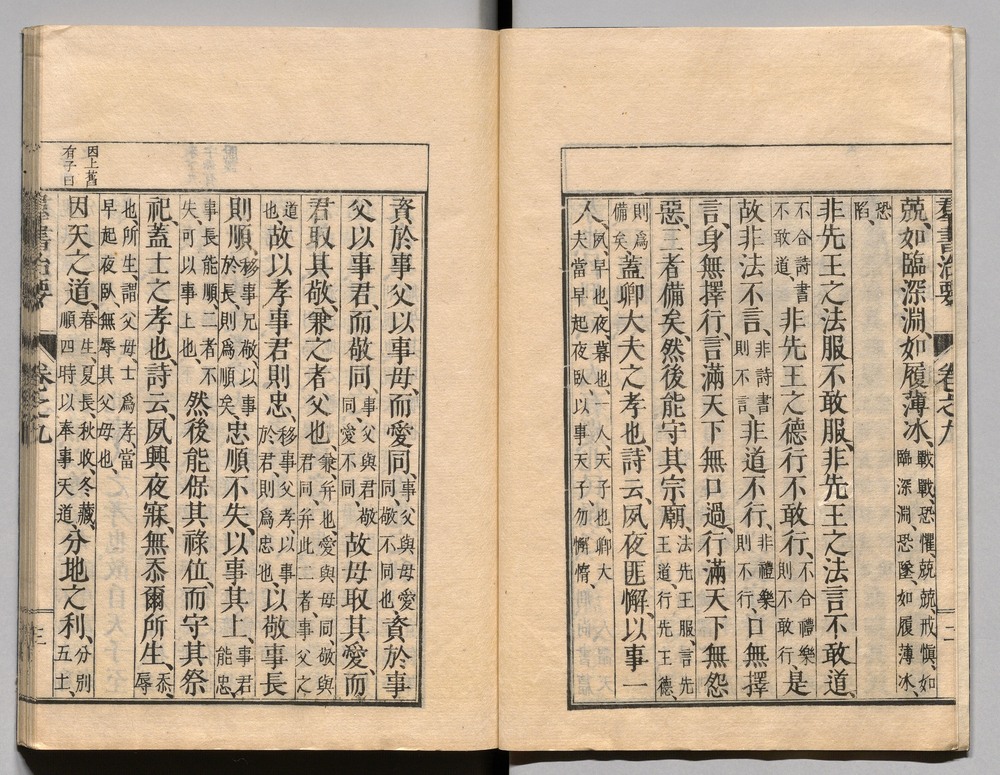 羣書治要 卷之九 二
兢、如臨深淵、如履薄冰、戰戰、恐懼、兢兢、戒愼、如臨深淵、恐墜、如履薄冰、
恐陷、
非先王之法服不敢服、非先王之法言不敢道、
不合詩書不敢道、非先王之德行不敢行、不合禮樂則不敢行、是
故非法不言、非詩書則不言、非道不行、非禮樂則不行、口無擇
言、身無擇行、言滿天下無口過、行滿天下無怨
惡、三者備矣、然後能守其宗廟、法先王服、言先王道、行先王德、
則爲備矣、蓋卿大夫之孝也、詩云、夙夜匪懈、以事一
人、夙、早也、夜、暮也、一人、天子也、卿大夫當早起夜臥、以事天子、勿懈惰、
資於事父以事母、而愛同、事父與母愛同、敬不同也、資於事
父以事君、而敬同、事父與君敬同、愛不同、故母取其愛、而
君取其敬、兼之者父也、兼、幷也、愛與母同、敬與君同、幷此二者、事父之
道也、故以孝事君則忠、移事父孝以事於君、則爲忠也、以敬事長
則順、移事兄敬以事於長、則爲順矣、忠順不失、以事其上、事君能忠、
事長能順、二者不失、可以事上也、然後能保其祿位、而守其祭
祀、蓋士之孝也、詩云、夙興夜寐、無忝爾所生、忝、辱
也、所生、謂父母、士爲孝、當早起夜臥、無辱其父母也、
因天之道、春生、夏長、秋收、冬藏、順四時以奉事天道、分地之利、分別五土、
因上舊
有子曰
羣書治要 卷之九 三